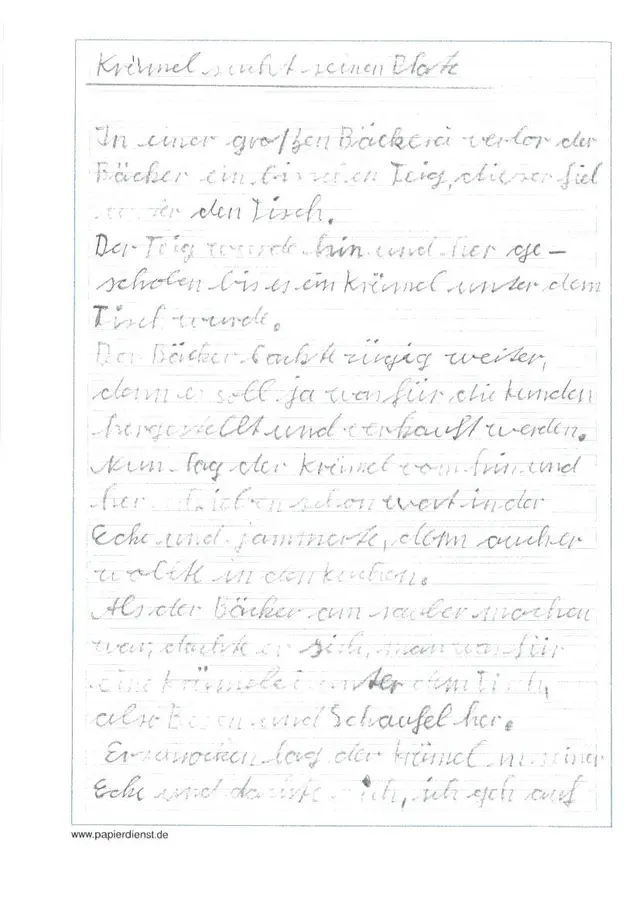 Krümel sucht seinen Platz
In einer großen Bäckerei verlor der
Bäcker ein bisschen Teig, dieser fiel
unter den Tisch.
Der Teig wurde hin und her ge-
schoben bis es ein Krümel unter dem
Tisch wurde.
Der Bäcker backte zügig weiter,
denn es soll ja was für die Kunden
hergestellt und verkauft werden.
Nun lag der Krümel vom hin und
her schieben schon wort in der
Ecke und jammerte, denn auch er
wollte in den Kuchen.
Als der Bäcker am sauber machen
war, dachte er sich, man was für
eine Krümelei unter dem Tisch,
also Besen und Schaufel her.
Erschrocken lag der Krümel in seiner
Ecke und dachte sich, ich geh auf
www.papierdienst.de